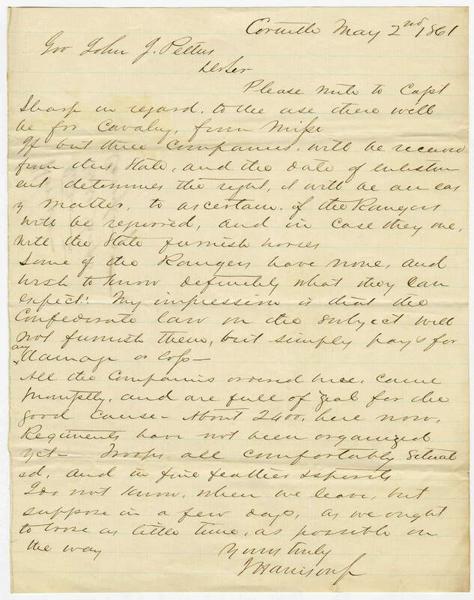 Corinth May 2nd 1861
Gov John J. Pettus
Dr Sir
Please write to Capt
Sharp in regard, to the use there will
be for Cavalry, from Miss.
If but three Companies, will be received
from this State, and the date of enlistm
ent, determines the right, it will be an eas
y matter, to ascertain, if the Rangers
will be required, and in case they are,
will the State furnish horses
Some of the Rangers have none, and
wish to know definitely what they can
expect. My impression is that the
Confederate law on the subject will
not furnish them, but simply pays for
any damage or loss—
All the Companies ordered here, came
promptly, and are full of zeal for the
good cause— About 2400, here now,
Regiments have not been organized
yet— Troops all comfortably situat
ed, and in fine feathers & spirits
I do not know, when we leave, but
suppose in a few days, as we ought
to lose as little time, as possible on
the way
Yours truly
J Harrison